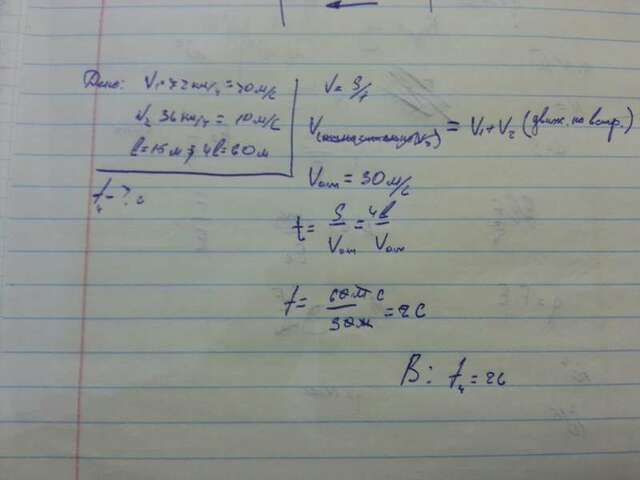 Дано: V₁ = 72 км/ч = 20 м/с
V₂ 36 км/ч = 10 м/с
l = 15 м; 4l = 60 м
t₄ - ? с
V = S/t
= V₁ + V₂ (движ. на встр.)
Vотн = 30 м/с
t = S/Vотн = 4l/Vотн
t = 60м с/30м = 2с
В: t₄ = 2с